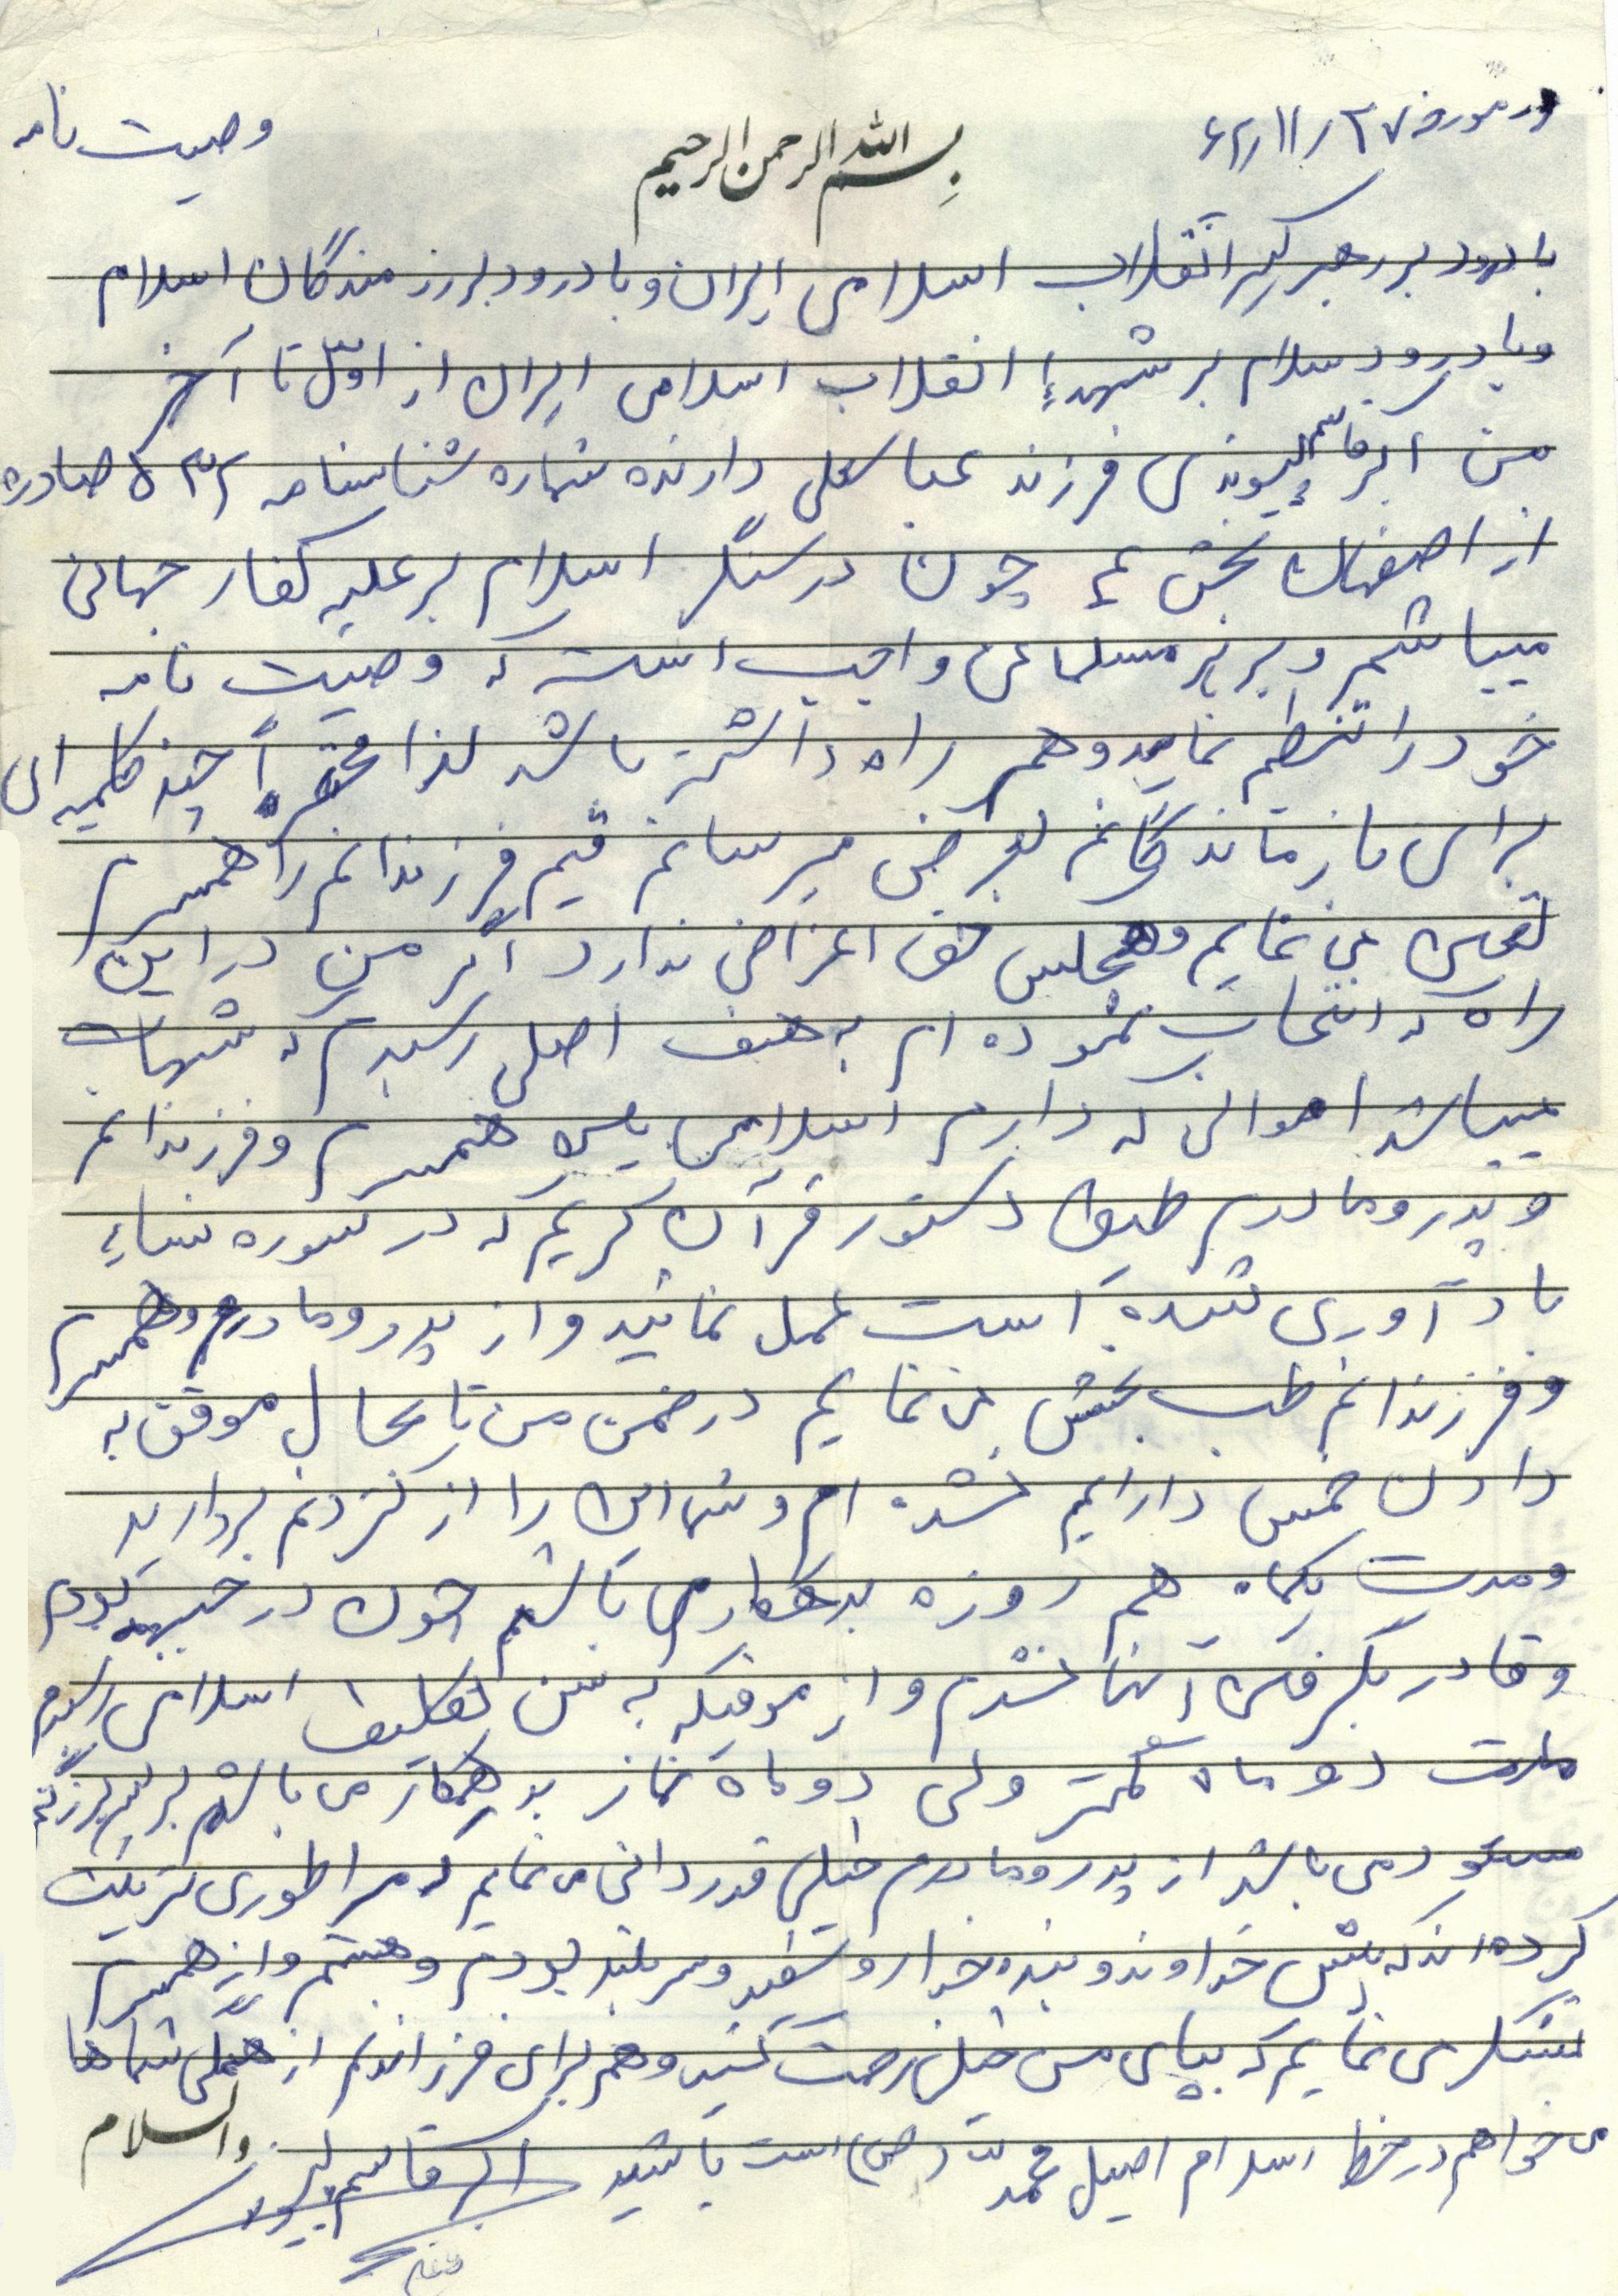 در مورخه ۶۲/۱۱/۲۷
بسم الله الرحمن الرحیم
وصیت نامه
با درود بر رهبر کبیر انقلاب اسلامی ایران و با درود بر رزمندگان اسلام
وبا درود سلام بر شهداء انقلاب اسلامی ایران از اوّل تا آخر
من اکبر قاسم لیوندی فرزند عباسعلی دارنده شماره شناسنامه ۵۳۲ صادره
از اصفهان بخش ۴ چون در سنگر اسلام بر علیه کفار جهانی
میباشم و بر هر مسلمانی واجب است که وصیت نامه
خود را تنظیم نماید و همراه داشته باشد لذا مختصراً چند کلمه ای
برای بازماندگانم بعرض میرسانم قیم فرزندانم را همسرم
تعین می نمایم و هیچکس حق اعتراض ندارد اگر من در این
راه که انتخاب نموده ام به هدف اصلی رسیدم که شهادت
میباشد اموالی که دارم اسلامی بین همسرم و فرزندانم
و پدر و مادرم طبق دستور قرآن کریم که در سوره نساء
یاد آوری شده است عمل نمائید و از پدر و مادرم و همسرم
و فرزندانم طلب بخشش می نمایم در ضمن من تا بحال موفق به
دادن خمس دارایم نشده ام و شما این را از گردنم بردارید
و مدت یکماه هم روزه بدهکار می باشم چون در جبهه بودم
و قادر بگرفتن آنها نشدم و از موقیکه به سن تکلیف اسلامی رسیدم
مدت دو ماه کمتر ولی دو ماه نماز بدهکار می باشم بر پسر بزرگم
مسعود می باشد از پدر و مادرم خیلی قدردانی می نمایم که مرا طوری تربیت
کرده اند که پیش خداوند و بنده خدا رو سفید و سر بلند بودم و هستم و از همسرم
تشکر می نمایم که بپای من خیلی زحمت کشید و هم برای فرزندانم از همگی شماها
می خواهم در خط اسلام اصیل محمد (ص) است باشید
والسلام
اکبر قاسم لیوندی